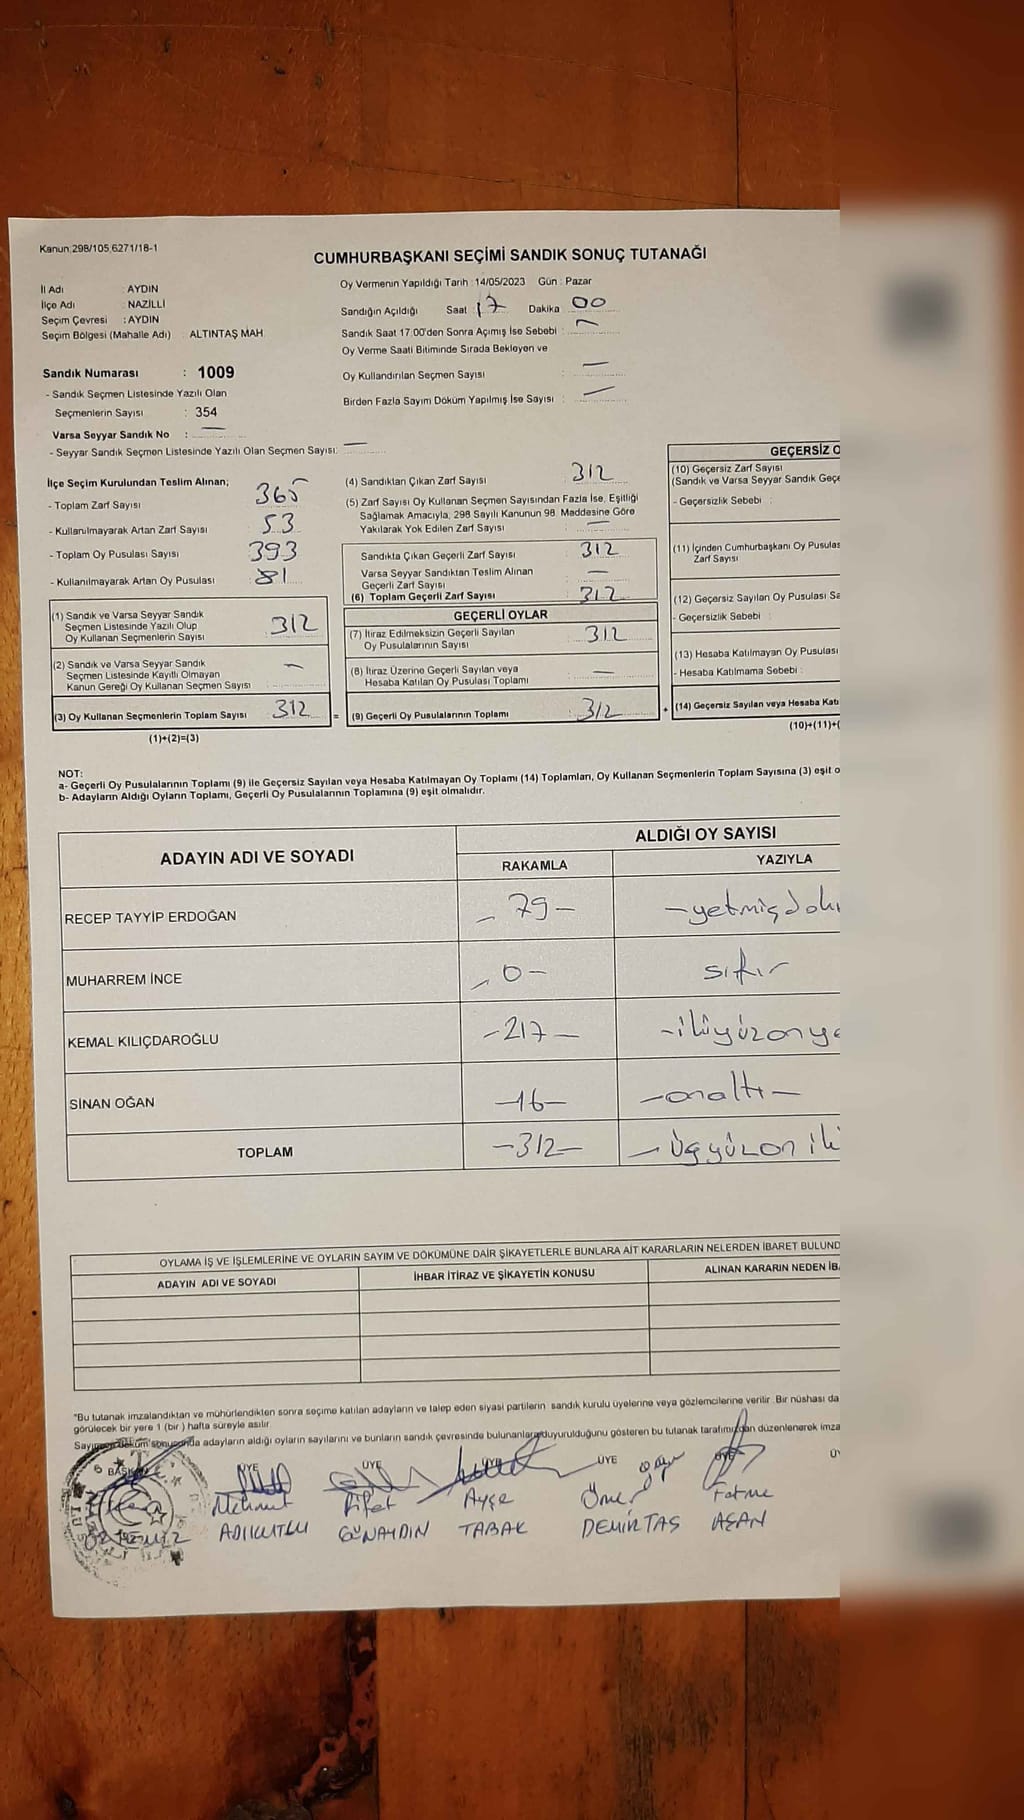 Kanun;298/105,6271/18-1
CUMHURBAŞKANI SEÇİMİ SANDIK SONUÇ TUTANAĞI
İl Adı : AYDIN
İlçe Adı : NAZİLLİ
Seçim Çevresi : AYDIN
Seçim Bölgesi (Mahalle Adı) ALTINTAŞ MAH.
Oy Vermenin Yapıldığı Tarih : 14/05/2023 Gün : Pazar
Sandığın Açıldığı Saat : 17 Dakika 00
Sandık Saat 17.00'den Sonra Açımış İse Sebebi :
Oy Verme Saati Bitiminde Sırada Bekleyen ve
Oy Kullandırılan Seçmen Sayısı
Birden Fazla Sayım Döküm Yapılmış İse Sayısı :
Sandık Numarası : 1009
- Sandık Seçmen Listesinde Yazılı Olan
Seçmenlerin Sayısı : 354
Varsa Seyyar Sandık No :
- Seyyar Sandık Seçmen Listesinde Yazılı Olan Seçmen Sayısı:
İlçe Seçim Kurulundan Teslim Alınan;
- Toplam Zarf Sayısı 365
- Kullanılmayarak Artan Zarf Sayısı 53
- Toplam Oy Pusulası Sayısı 393
- Kullanılmayarak Artan Oy Pusulası 81
(1) Sandık ve Varsa Seyyar Sandık
Seçmen Listesinde Yazılı Olup
Oy Kullanan Seçmenlerin Sayısı 312
(2) Sandık ve Varsa Seyyar Sandık
Seçmen Listesinde Kayıtlı Olmayan
Kanun Gereği Oy Kullanan Seçmen Sayısı -
(3) Oy Kullanan Seçmenlerin Toplam Sayısı 312
(1)+(2)=(3)
=
(4) Sandıktan Çıkan Zarf Sayısı 312
(5) Zarf Sayısı Oy Kullanan Seçmen Sayısından Fazla İse, Eşitliği
Sağlamak Amacıyla, 298 Sayılı Kanunun 98. Maddesine Göre
Yakılarak Yok Edilen Zarf Sayısı -
Sandıkta Çıkan Geçerli Zarf Sayısı 312
Varsa Seyyar Sandıktan Teslim Alınan
Geçerli Zarf Sayısı -
(6) Toplam Geçerli Zarf Sayısı 312
GEÇERLİ OYLAR
(7) İtiraz Edilmeksizin Geçerli Sayılan
Oy Pusulalarının Sayısı 312
(8) İtiraz Üzerine Geçerli Sayılan veya
Hesaba Katılan Oy Pusulası Toplamı -
(9) Geçerli Oy Pusulalarının Toplamı 312
+
GEÇERSİZ O
(10) Geçersiz Zarf Sayısı
(Sandık ve Varsa Seyyar Sandık Geçe
- Geçersizlik Sebebi :
(11) İçinden Cumhurbaşkanı Oy Pusulas
Zarf Sayısı
(12) Geçersiz Sayılan Oy Pusulası Sa
- Geçersizlik Sebebi :
(13) Hesaba Katılmayan Oy Pusulası
- Hesaba Katılmama Sebebi :
(14) Geçersiz Sayılan veya Hesaba Katı
(10)+(11)+(
NOT:
a- Geçerli Oy Pusulalarının Toplamı (9) ile Geçersiz Sayılan veya Hesaba Katılmayan Oy Toplamı (14) Toplamları, Oy Kullanan Seçmenlerin Toplam Sayısına (3) eşit o
b- Adayların Aldığı Oyların Toplamı, Geçerli Oy Pusulalarının Toplamına (9) eşit olmalıdır.
ADAYIN ADI VE SOYADI
ALDIĞI OY SAYISI
RAKAMLA YAZIYLA
RECEP TAYYİP ERDOĞAN - 79 - - yetmişdoku
MUHARREM İNCE - 0 - sıfır
KEMAL KILIÇDAROĞLU - 217 - - ikiyüzonye
SİNAN OĞAN - 16 - - onaltı -
TOPLAM - 312 - - üçyüzoniki
OYLAMA İŞ VE İŞLEMLERİNE VE OYLARIN SAYIM VE DÖKÜMÜNE DAİR ŞİKAYETLERLE BUNLARA AİT KARARLARIN NELERDEN İBARET BULUND
ADAYIN ADI VE SOYADI İHBAR İTİRAZ VE ŞİKAYETİN KONUSU ALINAN KARARIN NEDEN İBA
*Bu tutanak imzalandıktan ve mühürlendikten sonra seçime katılan adayların ve talep eden siyasi partilerin sandık kurulu üyelerine veya gözlemcilerine verilir. Bir nüshası da
görülecek bir yere 1 (bir ) hafta süreyle asılır.
Sayım ve döküm sonucunda adayların aldığı oyların sayılarını ve bunların sandık çevresinde bulunanlara duyurulduğunu gösteren bu tutanak tarafımızdan düzenlenerek imza
BAŞKAN ÜYE ÜYE ÜYE ÜYE ÜYE
Mehmut Rifat Ayşe Ömer Fatma
ADIKUTLU GÜNAYDIN TABAK DEMİRTAŞ ASAN